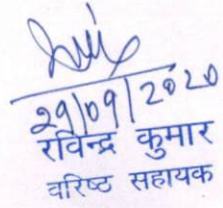 29/09/2020
रविन्द्र कुमार
वरिष्ठ सहायक